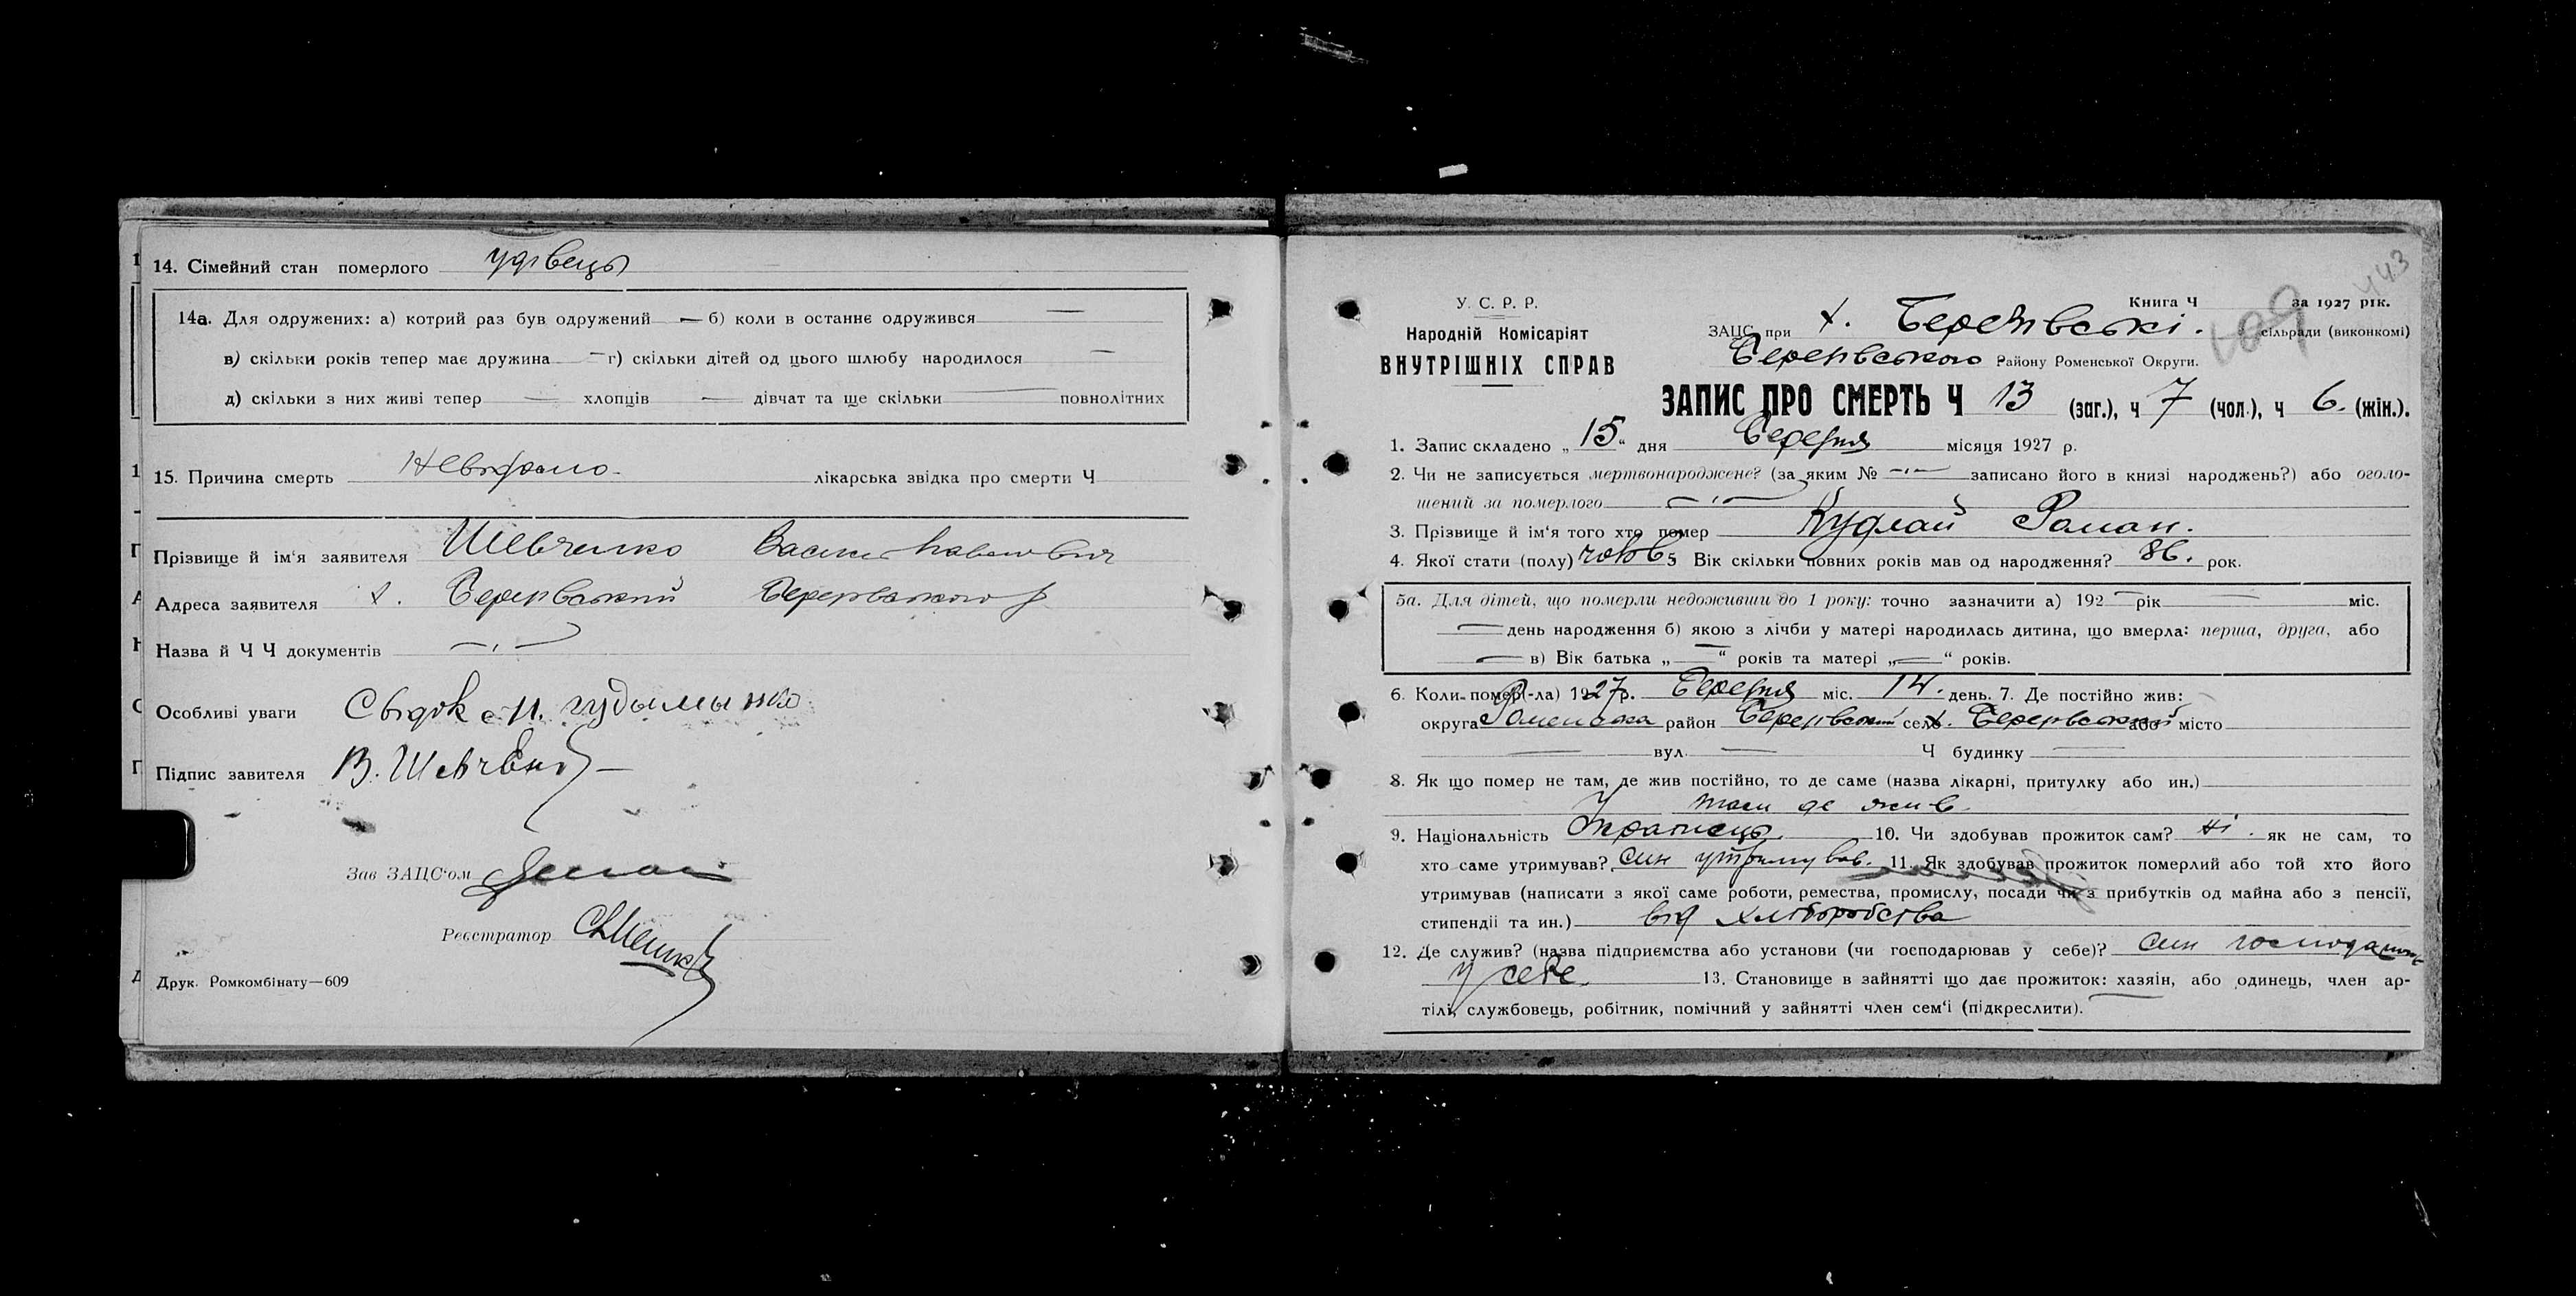 14. Сімейний стан померлого удівець
14а. Для одружених: а) котрий раз був одружений — б) коли в останнє одружився —
в) скільки років тепер має дружина — г) скільки дітей од цього шлюбу народилося —
д) скільки з них живі тепер — хлопців — дівчат та ще скільки — повнолітних
15. Причина смерть невідомо. лікарська звідка про смерти Ч
Прізвище й ім'я заявителя Шевченко Василь Павлович
Адреса заявителя х. Березівський Березівського р
Назва й Ч Ч документів —„—
Особливі уваги Свідок
Підпис завителя В. Шевченко
Зав ЗАЦС'ом
Реєстратор
Друк. Ромкомбінату—609
443
У. С. Р. Р.
Книга Ч за 1927 рік.
Народній Комісаріят
ВНУТРІШНІХ СПРАВ
ЗАЦС при х. сільради (виконкомі)
Березівського Району Роменської Округи.
ЗАПИС ПРО СМЕРТЬ Ч 13 (заг.), ч 7 (чол.), ч 6. (жін.).
1. Запис складено „15“ дня Березня місяця 1927 р.
2. Чи не записується мертвонароджене? (за яким № —„— записано його в книзі народжень?) або оголо-
шений за померлого —„—
3. Прізвище й ім'я того хто помер Кудлай Роман.
4. Якої стати (полу) чолов 5 Вік скільки повних років мав од народження? 86. рок.
5а. Для дітей, що померли недоживши до 1 року: точно зазначити а) 192 — рік — міс.
— день народження б) якою з лічби у матері народилась дитина, що вмерла: перша, друга, або
— в) Вік батька „—“ років та матері „—“ років.
6. Коли помер(-ла) 1927р. Березня міс. 14. день. 7. Де постійно жив:
округа Роменська район Березівський село х. Березівський або місто
— вул. — Ч будинку —
8. Як що помер не там, де жив постійно, то де саме (назва лікарні, притулку або ин.)
У там де жив.
9. Національність Українець. 10. Чи здобував прожиток сам? ні. як не сам, то
хто саме утримував? син утримував. 11. Як здобував прожиток померлий або той хто його
утримував (написати з якої саме роботи, ремества, промислу, посади чи з прибутків од майна або з пенсії,
стипендії та ин.) від хліборобства
12. Де служив? (назва підприємства або установи (чи господарював у себе)? син
у себе. 13. Становище в зайнятті що дає прожиток: хазяін, або одинець, член ар-
тілі, службовець, робітник, помічний у зайнятті член сем'ї (підкреслити).